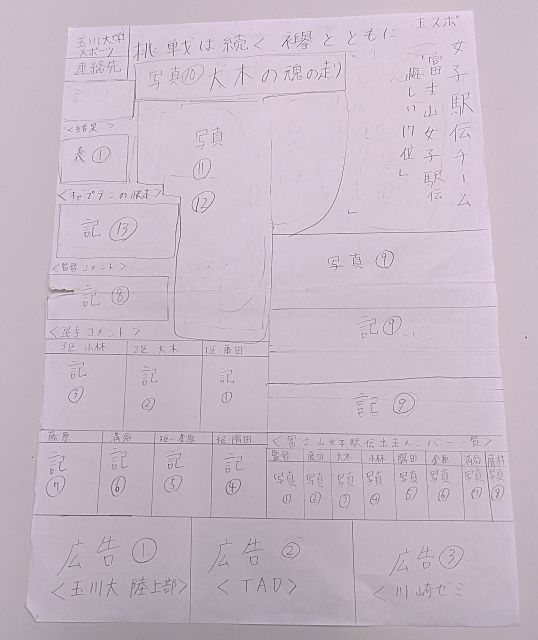 玉スポ
玉川大学
スポーツ
連絡先
挑戦は続く 襷とともに
女子駅伝チーム
富士山女子駅伝
「悔しい17位」
写真⑩ 大木の魂の走り
<結果>
表①
写真
⑪
⑫
<キャプテンの快走>
記⑬
<監督コメント>
記⑧
写真⑨
記⑨
記⑨
<選手コメント>
3区 小林
2区 大木
1区 藤田
記
③
記
②
記
①
藤原
満谷
4区 隅田
記
⑦
記
⑥
記
⑤
記
④
<富士山女子駅伝出走メンバー一覧>
監督
藤田
大木
小林
隅田
満谷
写真
①
写真
②
写真
③
写真
④
写真
⑤
写真
⑥
写真
⑦
写真
⑧
広告①
<玉川大 陸上部>
広告②
<TAD>
広告③
<川崎ゼミ>